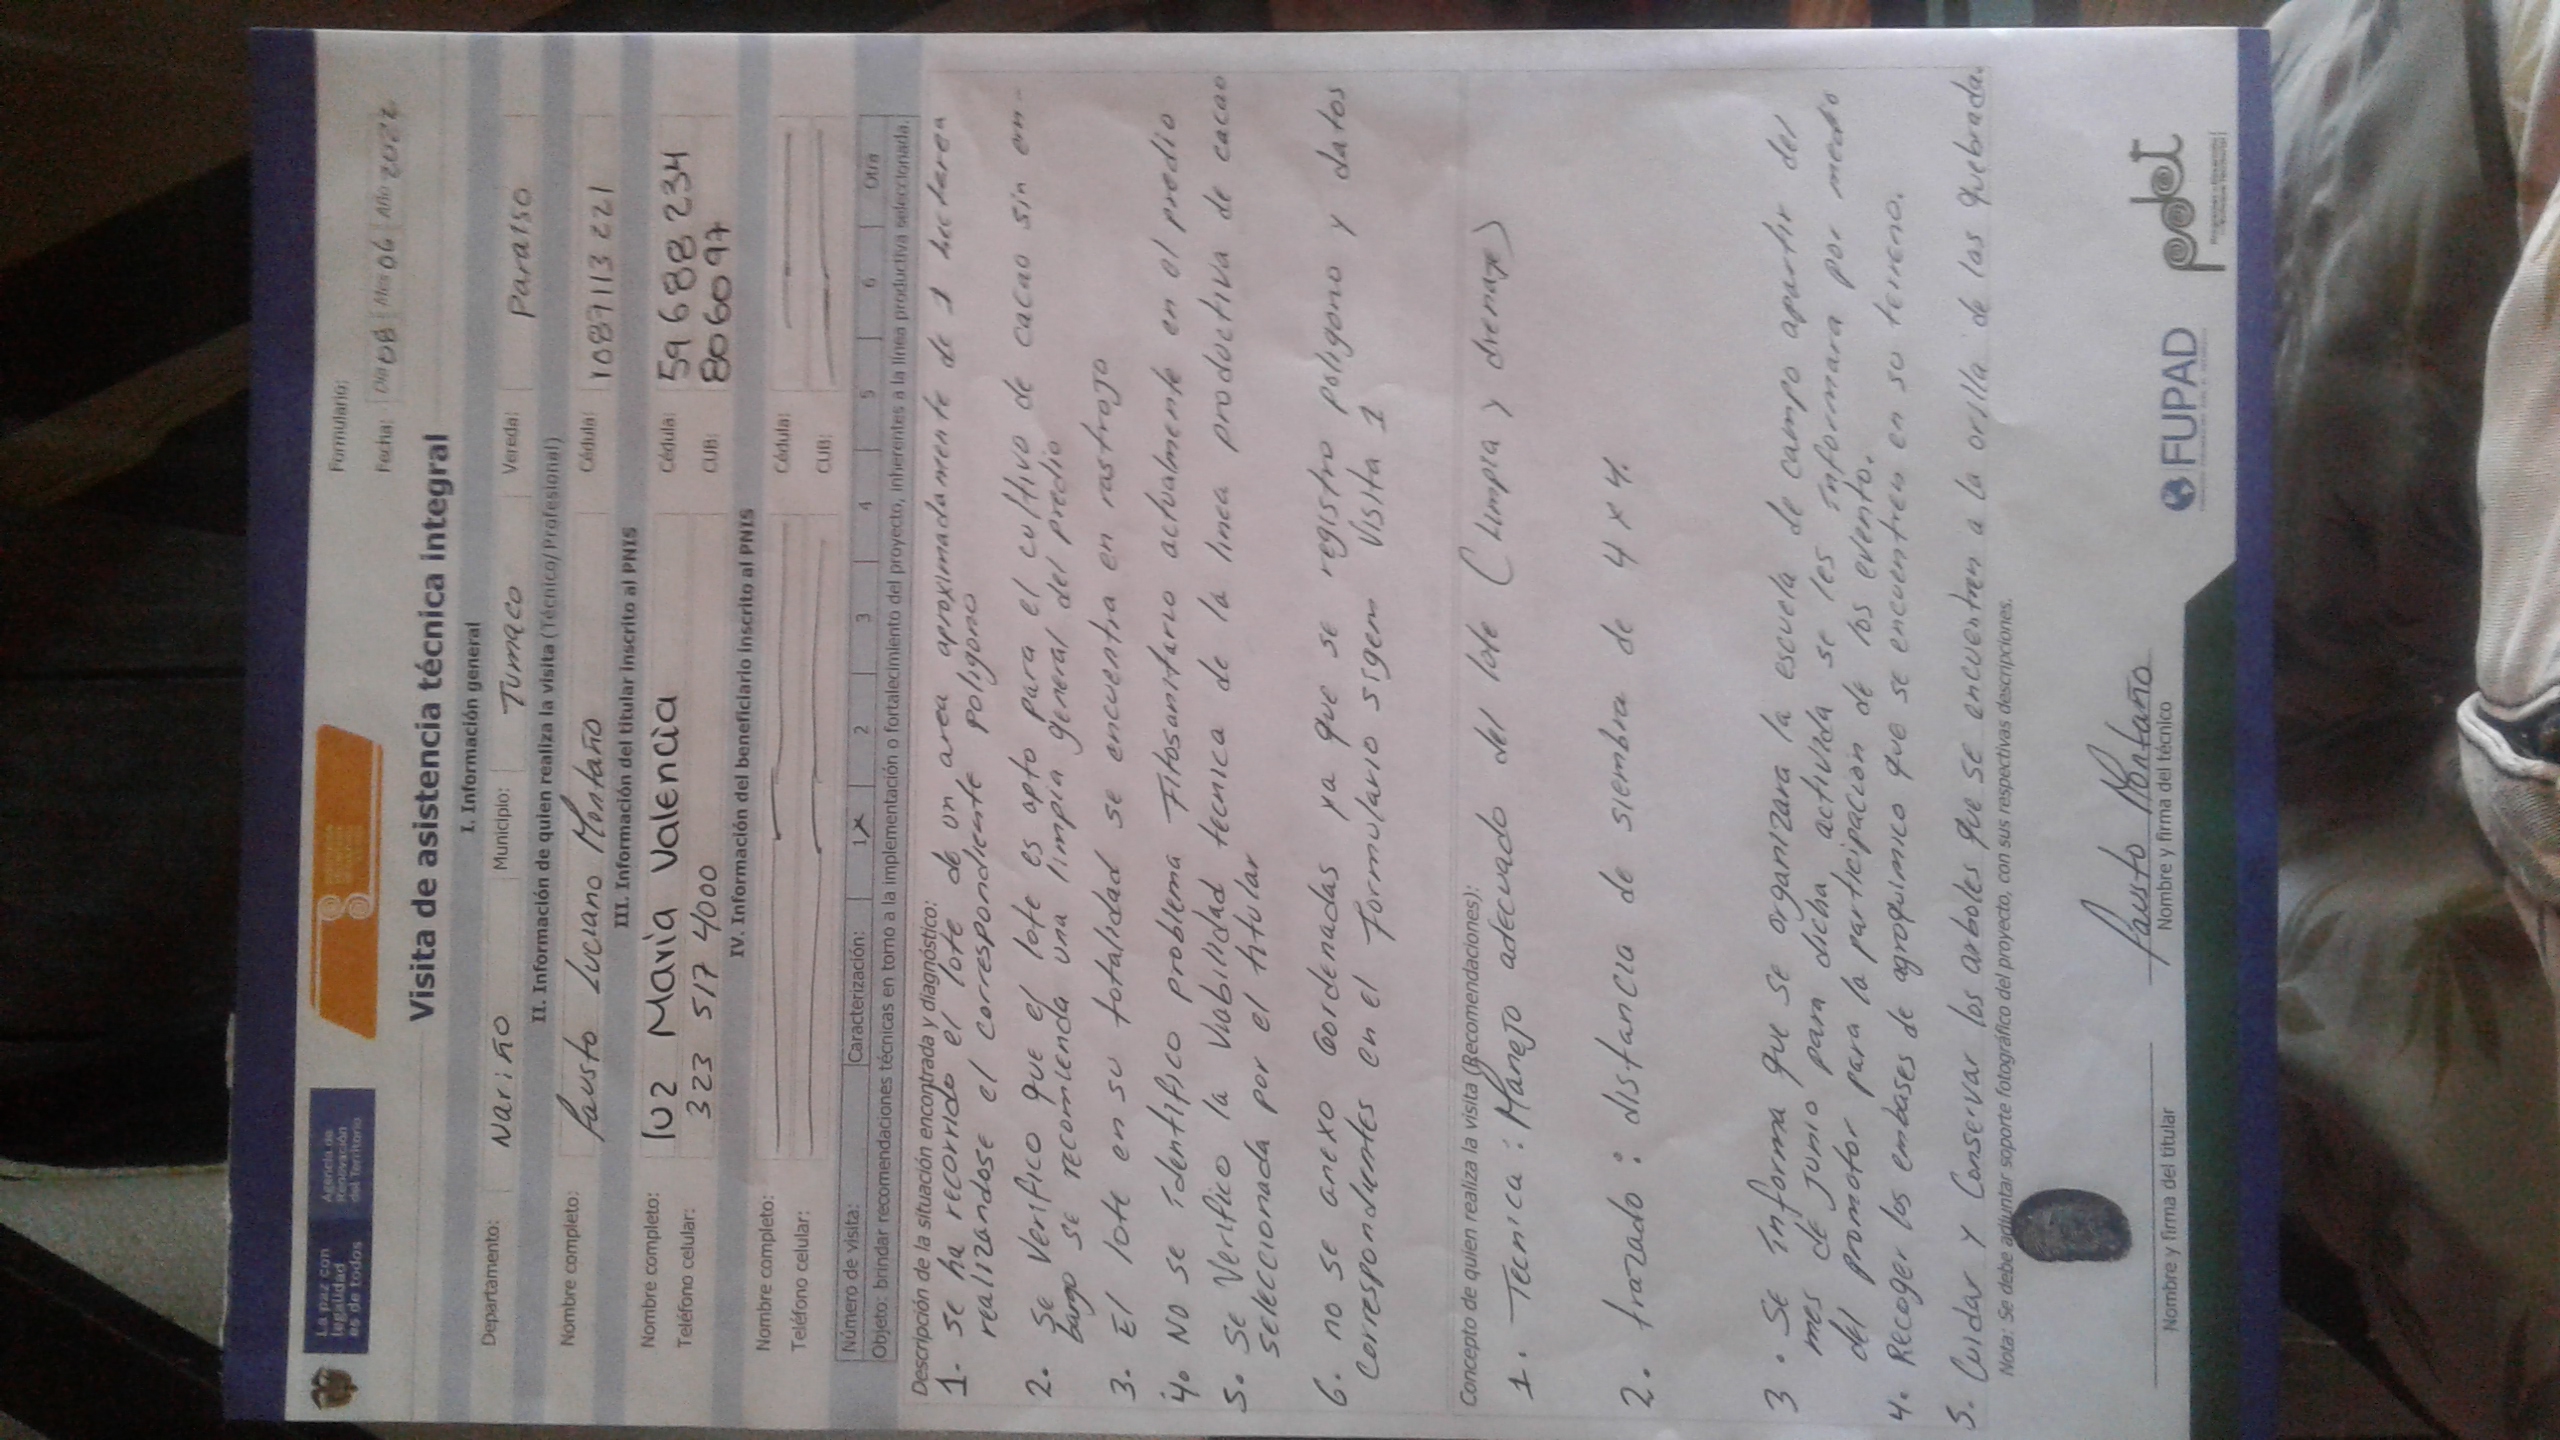 La paz con
legalidad
es de todos
Agencia de
Renovación
del Territorio
Formulario:
Fecha: Día 08 Mes 06 Año 2022
Visita de asistencia técnica integral
I. Información general
Departamento: Nariño Municipio: Tumaco Vereda: Paraiso
II. Información de quien realiza la visita (Técnico/Profesional)
Nombre completo: Fausto Luciano Montaño Cédula: 1087113221
III. Información del titular inscrito al PNIS
Nombre completo: luz Maria Valencia Cédula: 59688234
Teléfono celular: 323 517 4000 CUB: 806097
IV. Información del beneficiario inscrito al PNIS
Nombre completo: Cédula:
Teléfono celular: CUB:
Número de visita: Caracterización: 1 x 2 3 4 5 6 Otra
Objeto: brindar recomendaciones técnicas en torno a la implementación o fortalecimiento del proyecto, inherentes a la línea productiva seleccionada.
Descripción de la situación encontrada y diagnóstico:
1. se ha recorrido el lote de un area aproximadamente de 1 hectarea
realizandose el correspondiente poligono
2. se Verifico que el lote es apto para el cultivo de cacao sin em-
bargo se recomienda una limpia general del predio
3. El lote en su totalidad se encuentra en rastrojo
4. NO se Identifico problema Fitosanitario actualmente en el predio
5. se Verifico la Viabilidad tecnica de la linea productiva de cacao
seleccionada por el titular
6. no se anexo cordenadas ya que se registro poligono y datos
correspondientes en el Formulario sigem Visita 1
Concepto de quien realiza la visita (Recomendaciones):
1. Tecnica: Manejo adecuado del lote (Limpia y drenaje)
2. trazado: distancia de siembra de 4 x 4.
3. Se informa que se organizara la escuela de campo apartir del
mes de Junio para dicha activida se les informara por medio
del promotor para la participacion de los evento.
4. Recoger los embases de agroquimico que se encuentren en su terreno.
5. Cuidar y Conservar los arboles que se encuentren a la orilla de las quebrada.
Nota: Se debe adjuntar soporte fotográfico del proyecto, con sus respectivas descripciones.
Fausto Montaño
Nombre y firma del titular Nombre y firma del técnico
FUPAD
pdet